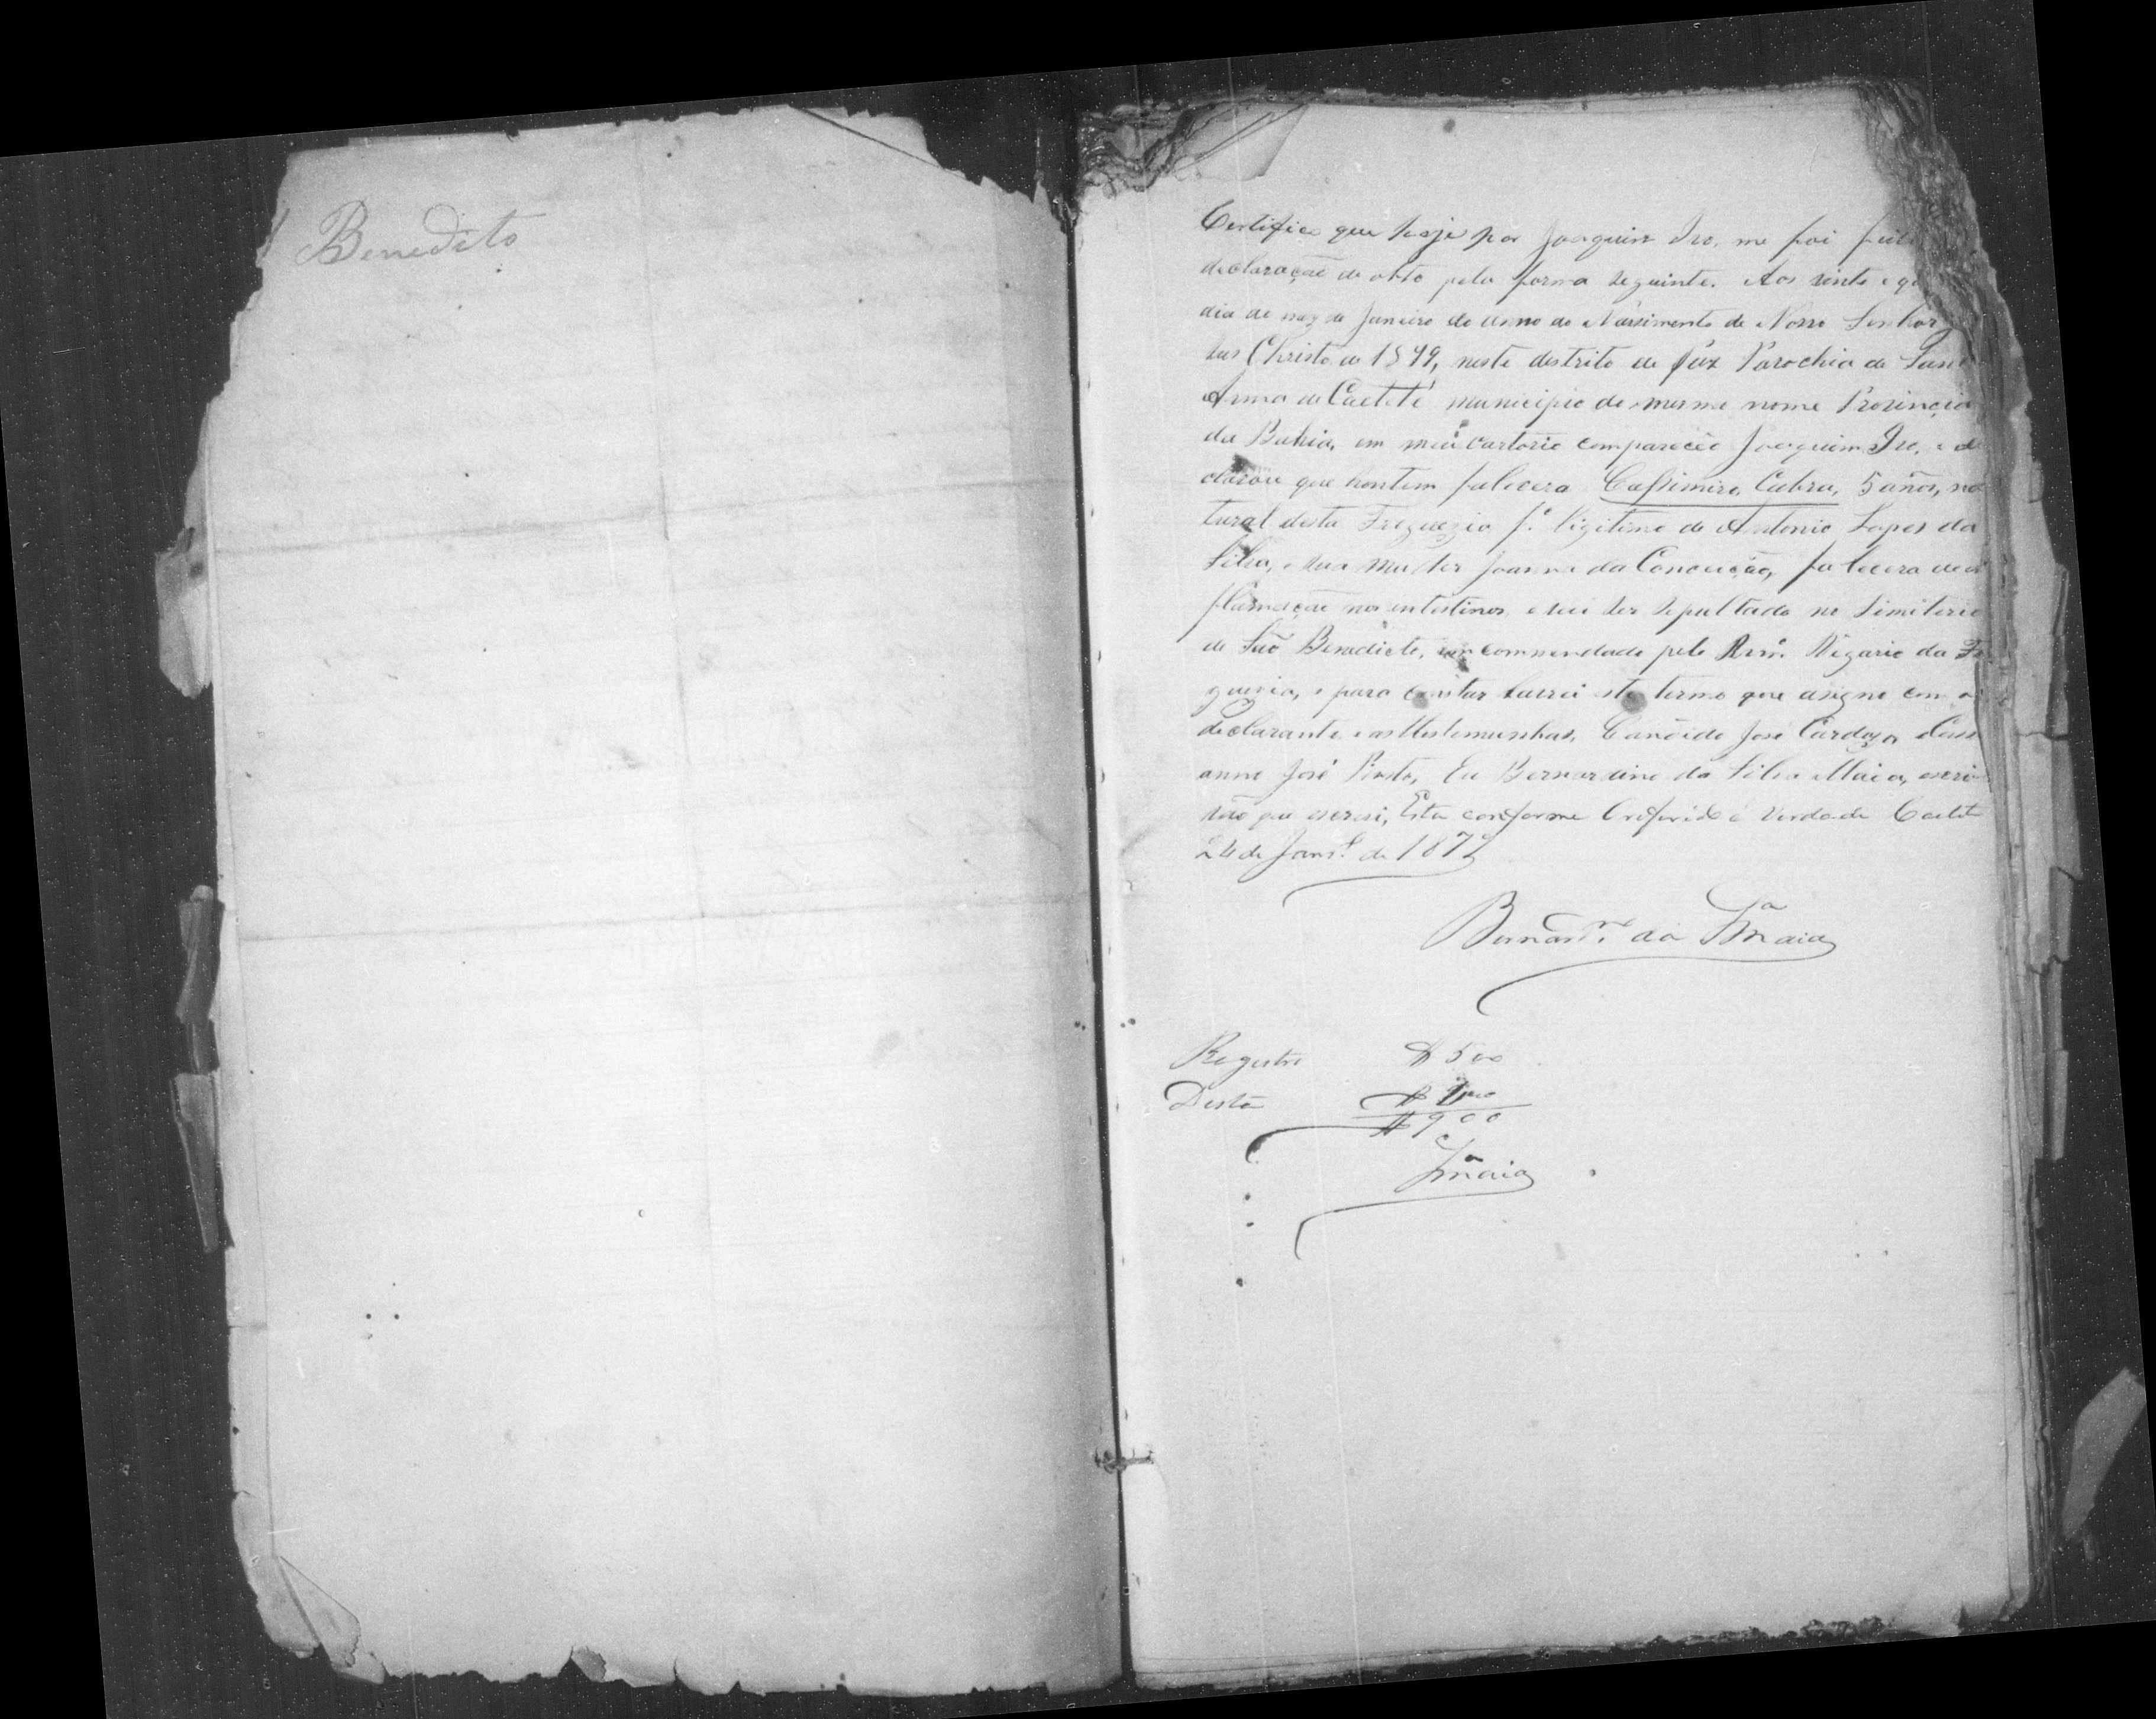 Benedito
Certifico que hoje por Joaquim Ivo, me foi feita
declaração de obto pela forma seguinte. Aos vinte e qu
dia do mez de Janeiro do anno do Nascimento de Nosso Senhor Je
sus Christo de 1879, neste destrito de Paz Parochia de Sant
Anna de Caeteté municipio do mesmo nome Provincia
da Bahia, em meu cartorio compareceo Joaquim Ivo, e de
clarou que hontem falecera Cassimiro, Cabra, 5 años, na
tural desta Freguezia f.º ligitimo de Antonio Lopes da
Silva, e sua mulher Joanna da Conceição, falecera de in
flamação nos intestinos e vai ser sepultado no Simiterio
de São Benedicto, em commendado pelo Rvm.º Vigario da Fre
guezia, e para constar lavrei este termo que asigno com o
declarante e as ttestemunhas, Candido José Cardozo, e Cass
anno José Pinto, Eu Bernardino da Silva Maia, escri
vão que escrevi, Esta conforme O referido é verdade Caetet
24 de Janr.º de 1879
Bernard.no da S.ª Maia
Registro $500
Desta $400
$900
S.ª Maia